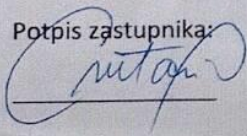 Potpis zastupnika: